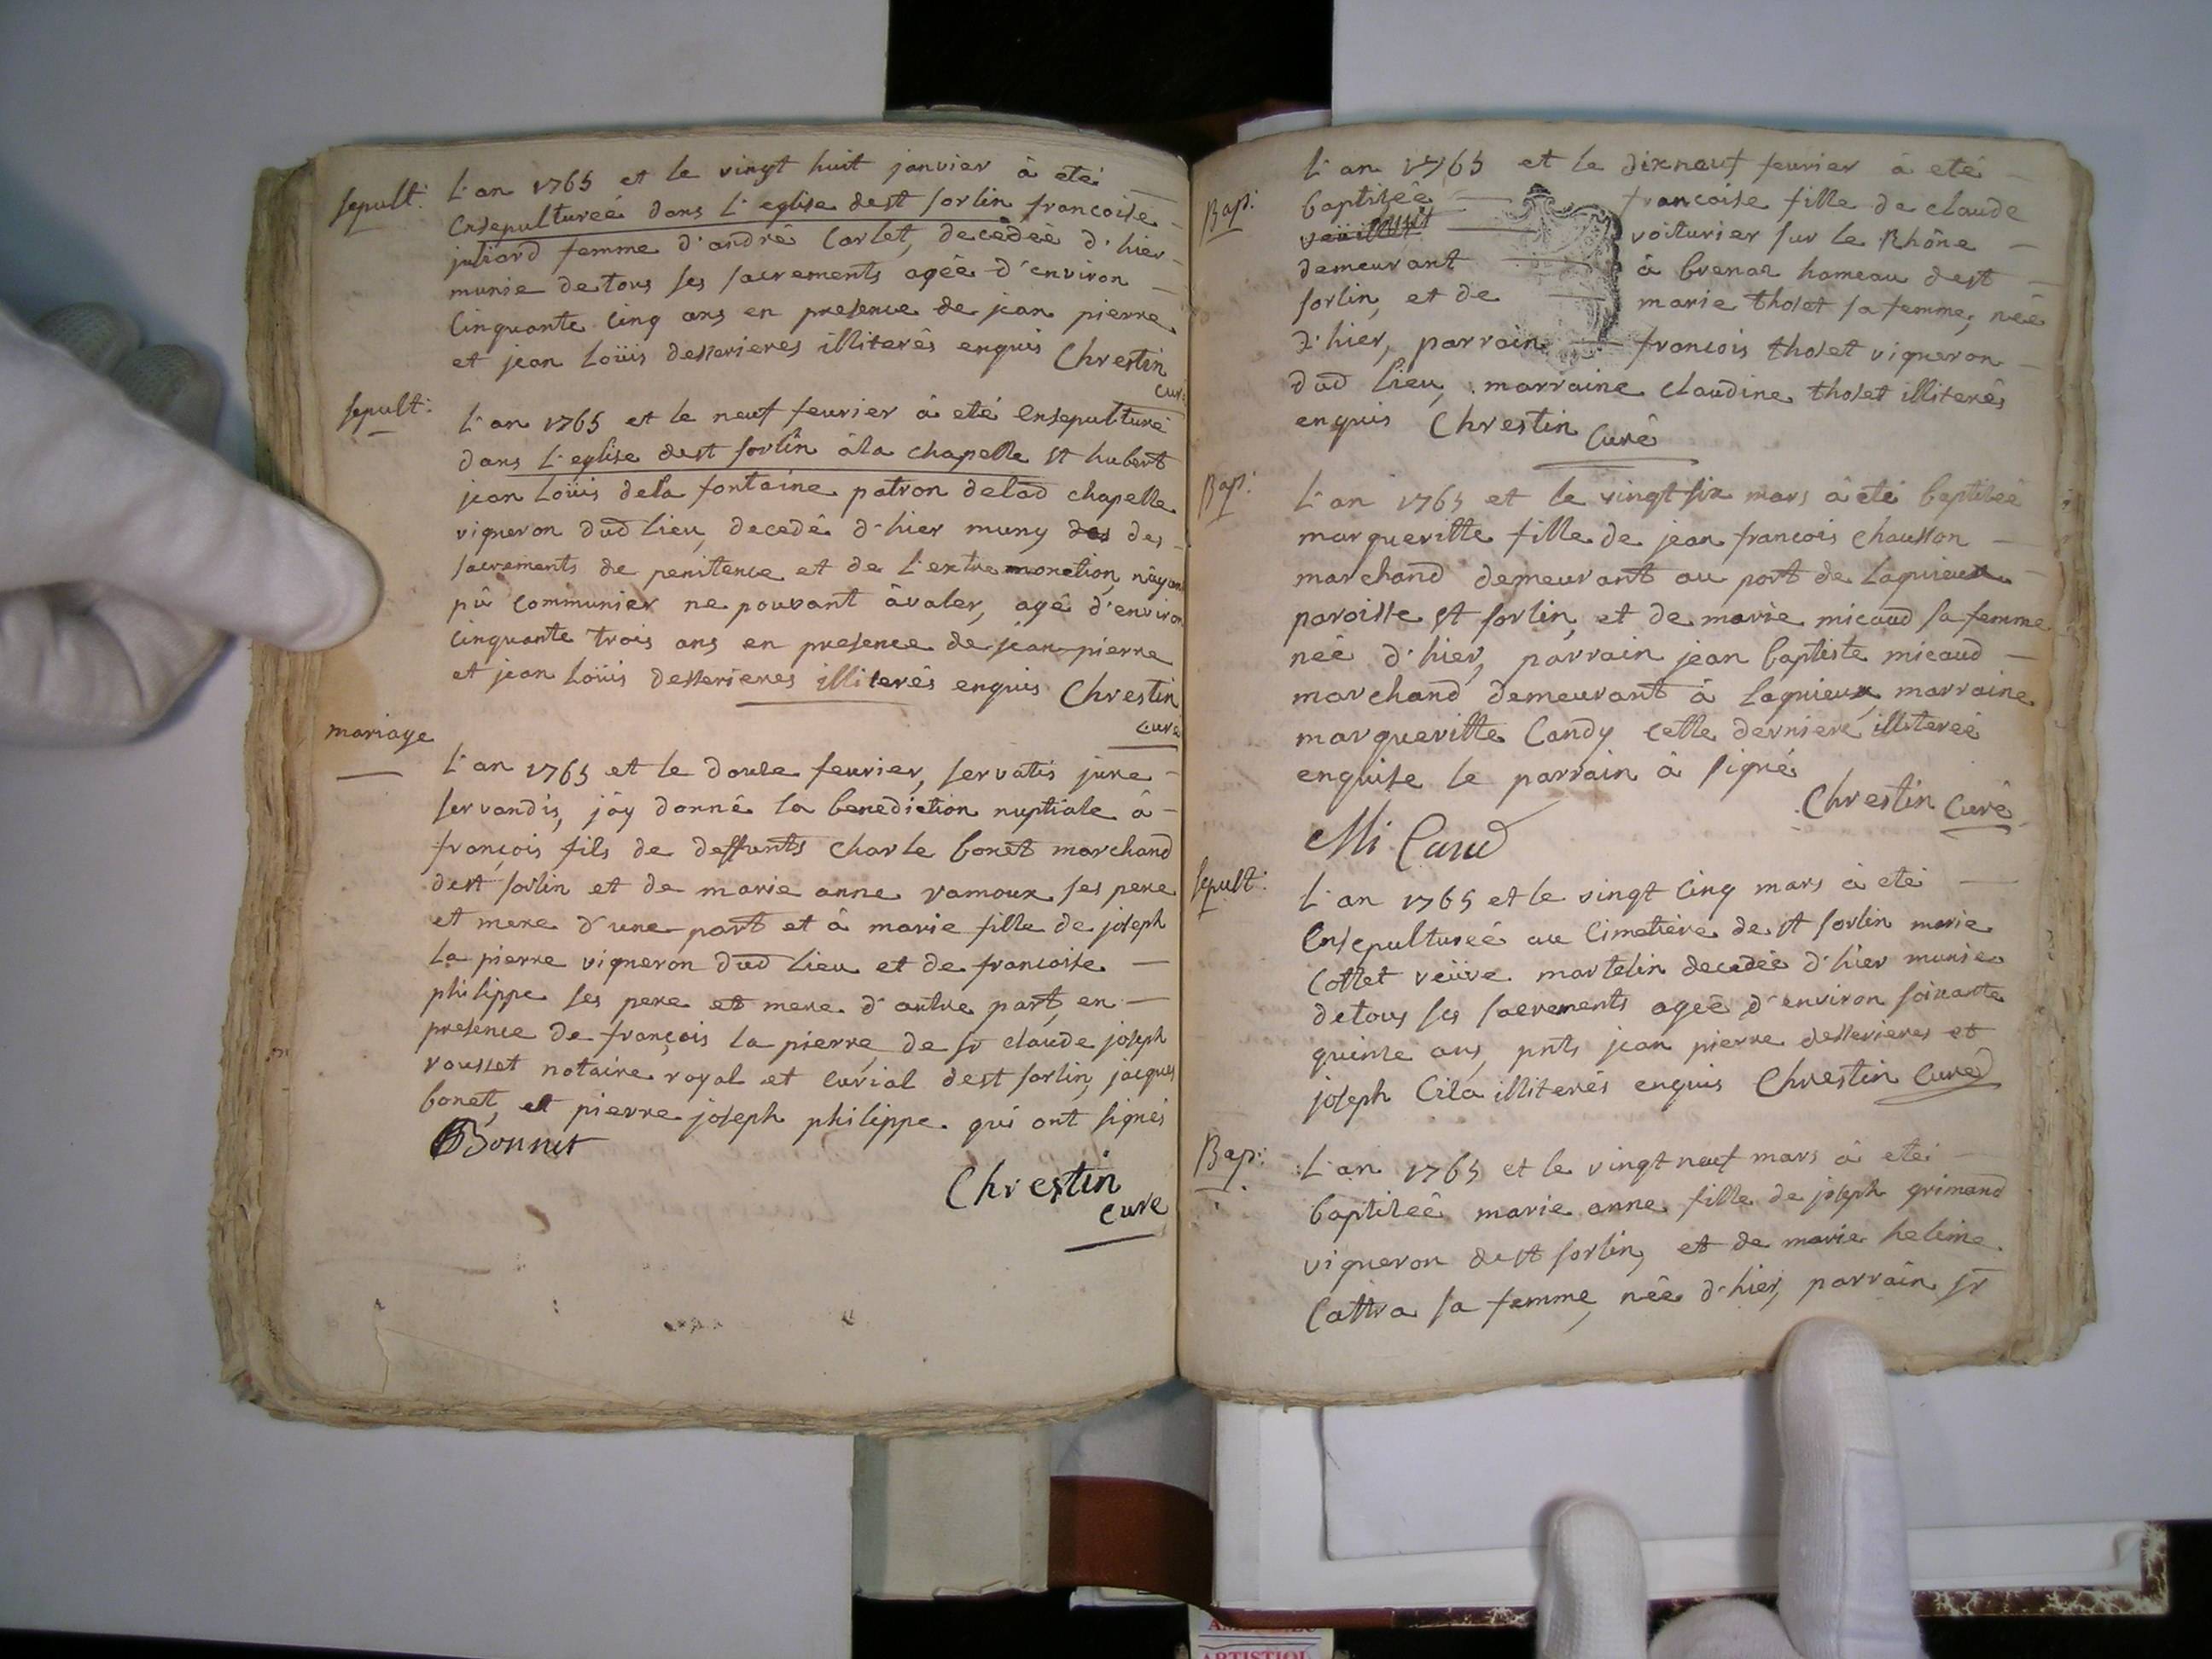 sepult:
L'an 1765 et le vingt huit janvier à eté
Ensepultureé dans L'eglise dest sorlin francoise
juliard femme d'andrê Carlet, decèdèè d'hier
munie detous ses sacrements agèe d'environ
Cinquante cinq ans en presence de jean pierre
et jean Loüis desserieres illiterês enquis Chrestin
curé
sepult:
L'an 1765 et le neuf feurier à eté Ensepulturé
dans L'eglise dest sorlin àla chapelle st hubert
jean Loüis dela fontaine patron delad chapelle
vigneron dud lieu, decedê d'hier muny des
sacrements de penitence et de L'extremonction, nàyant
pù communier ne pouvant àvaler, agê d'environ
Cinquante trois ans en presence de jean pierre
et jean Loüis desserieres illiterês enquis Chrestin
curé
mariage
L'an 1765 et le douze feurier, servatis jure
servandis, jày donnê la benediction nuptiale à
françois fils de deffunts Charle bonèt marchand
dest sorlin et de marie anne ramoux ses pere
et mere d'une part et à marie fille de joseph
La pierre vigneron dud lieu et de francoise
philippe ses pere et mere d'autre part, en
presence de françois la pierre, de sr claude joseph
rousset notaire royal et curial dest sorlin, jacques
bonet, et pierre joseph philippe qui ont signés
Bonnet
Chrestin
cure
Bap:
L'an 1765 et le dixneuf feurier à eté
baptisêe francoise fille de claude
voiturier sur le Rhône
demeurant à brenaz hameau dest
sorlin, et de marie tholet sa femme, nèe
d'hier, parrain francois tholet vigneron
dud lieu, marraine claudine tholet illiterês
enquis Chrestin Curê
Bap:
L'an 1765 et le vingt six mars à eté baptiseê
margueritte fille de jean francois chausson
marchand demeurant au port de Lagnieux
paroisse st sorlin, et de marie micaud sa femme
nèe d'hier, parrain jean baptiste micaud
marchand demeurant à Lagnieux, marraine
margueritte Candy cette derniere illitereê
enquise le parrain à signé
Chrestin Curê
Mi Caud
sepult:
L'an 1765 et le vingt Cinq mars à eté
Ensepultureé au Cimetière de st sorlin marie
Cottet veüve martelin decedèe d'hier munie
detous ses sacrements ageè d'environ soixante
quinze ans, pnts jean pierre desserieres et
joseph Cila illiterês enquis Chrestin Curé
Bap:
L'an 1765 et le vingt neuf mars à eté
baptisèê marie anne fille de joseph grimand
vigneron dest sorlin, et de marie heleine
Cattra sa femme, nèe d'hier, parrain sr